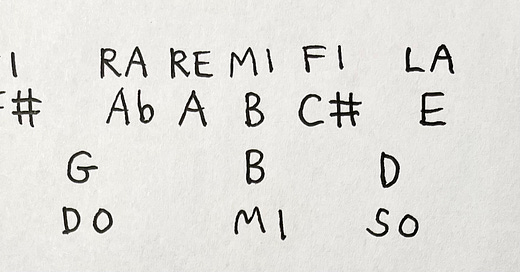 I RA RE MI FI LA
F# Ab A B C# E
G B D
DO MI SO